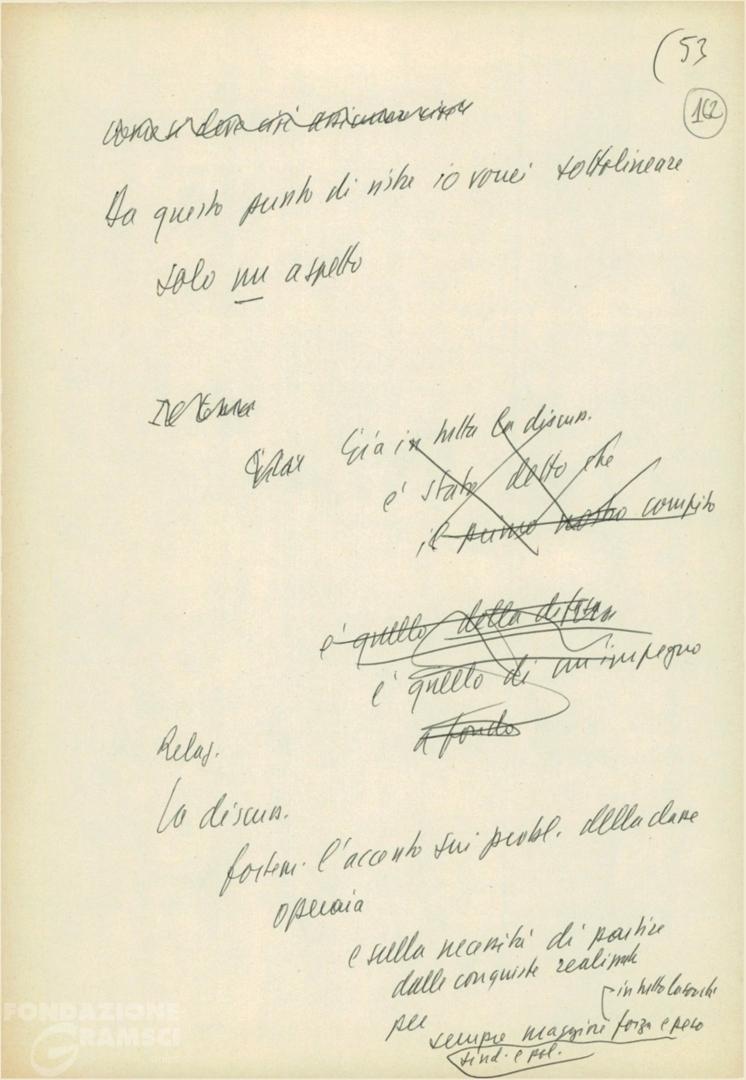 (53
162
Da questo punto di vista io vorrei sottolineare
solo un aspetto
Già in tutta la discuss.
è stato detto che
il primo nostro compito
è quello della difesa
è quello di un impegno
a fondo
Relaz.
La discuss.
fortem. l'accento sui probl. della classe
operaia
e sulla necessità di partire
dalle conquiste realizzate
per
in tutta la società
sempre maggiore forza e peso
sind. e pol.
FONDAZIONE
GRAMSCI